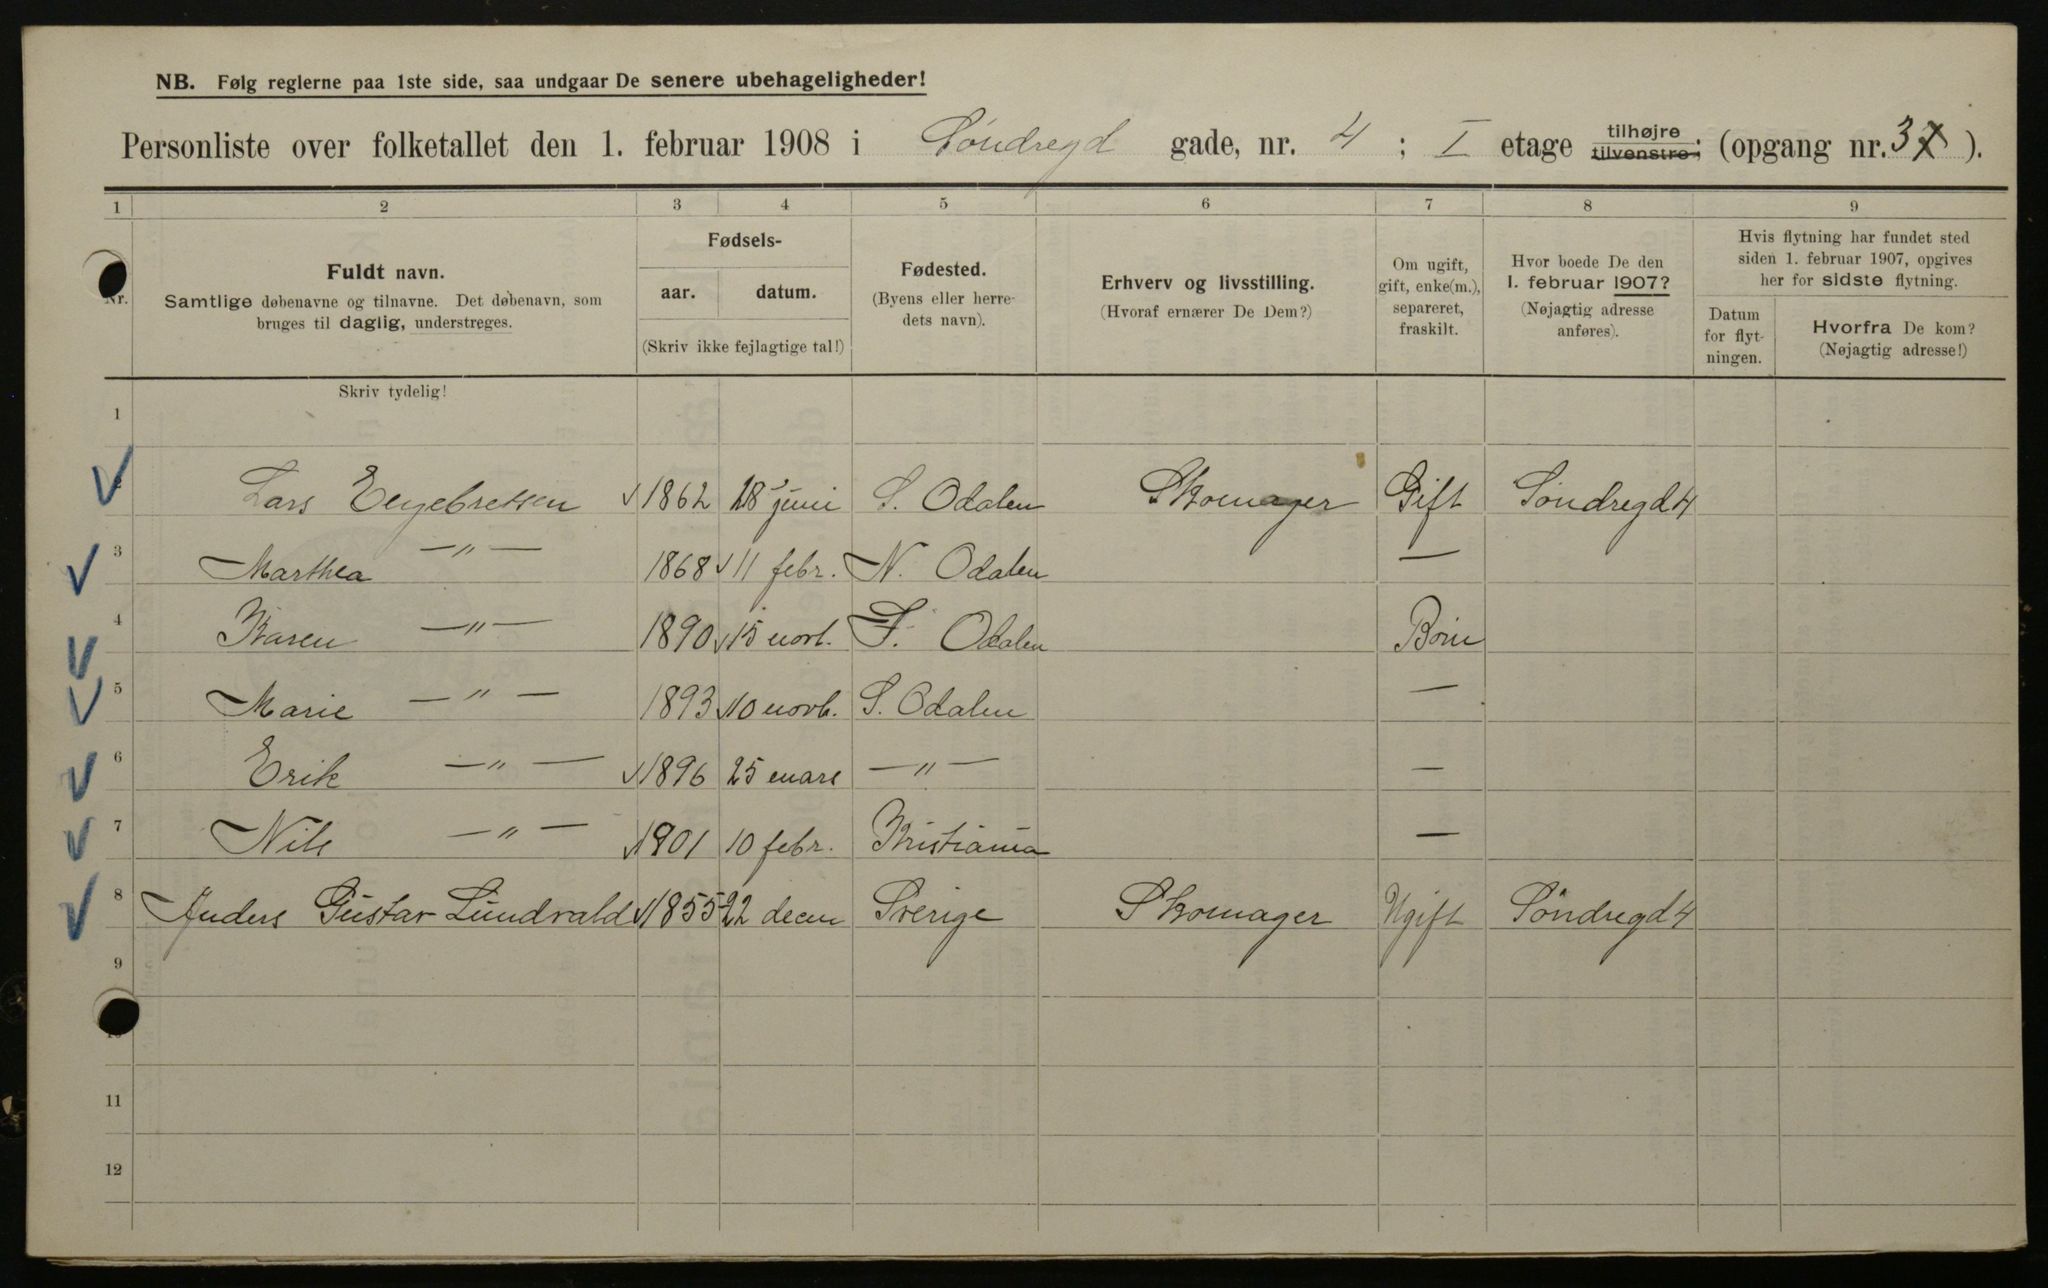 NB. Følg reglerne paa 1ste side, saa undgaar De senere ubehageligheder!
Personliste over folketallet den 1. februar 1908 i Søndregd gade, nr. 4 ; I etage tilhøjre tilvenstre; (opgang nr. 3 ).
1 2 3 4 5 6 7 8 9
Nr.
Fuldt navn.
Samtlige døbenavne og tilnavne. Det døbenavn, som
bruges til daglig, understreges.
Fødsels-
aar. datum.
(Skriv ikke fejlagtige tal!)
Fødested.
(Byens eller herre-
dets navn).
Erhverv og livsstilling.
(Hvoraf ernærer De Dem?)
Om ugift,
gift, enke(m.),
separeret,
fraskilt.
Hvor boede De den
1. februar 1907?
(Nøjagtig adresse
anføres).
Hvis flytning har fundet sted
siden 1. februar 1907, opgives
her for sidste flytning.
Datum
for flyt-
ningen.
Hvorfra De kom?
(Nøjagtig adresse!)
Skriv tydelig!
1
Lars Engebretsen 1862 18 juni S. Odalen Skomager Gift Søndregd 4
3 Marthea —"— 1868 11 febr. N. Odalen —
4 Karen —"— 1890 15 novb. S. Odalen Born
5 Marie —"— 1893 10 novb. S. Odalen —
6 Erik —"— 1896 25 mars —"— —
7 Nils —"— 1901 10 febr. Kristiania —
8 Anders Gustav Lundvald 1855 22 decm Sverige Skomager Ugift Søndregd 4
9
10
11
12